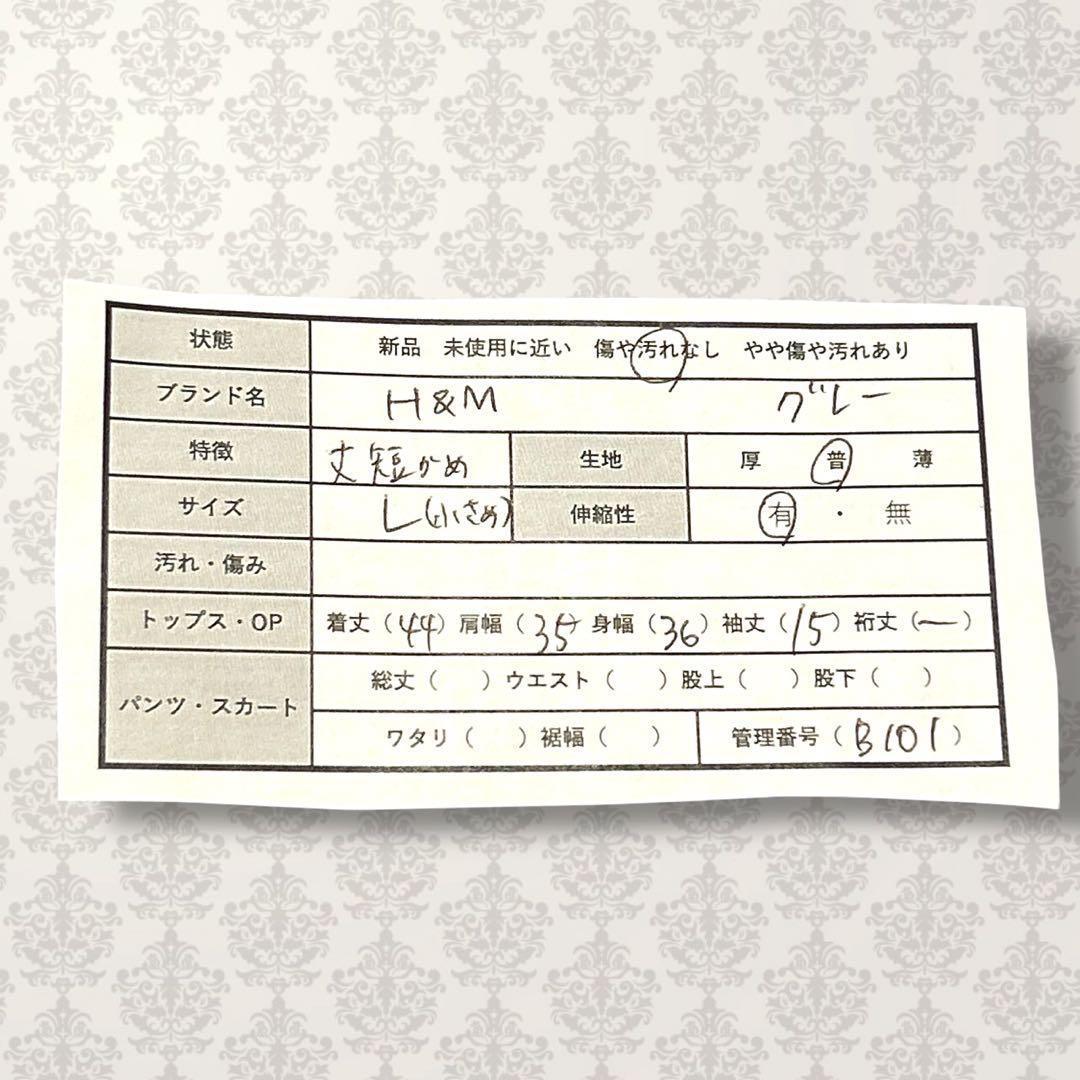 状態 新品 未使用に近い 傷や汚れなし やや傷や汚れあり
ブランド名 H&M グレー
特徴 丈短かめ 生地 厚 普 薄
サイズ L(小さめ) 伸縮性 有・無
汚れ・傷み
トップス・OP 着丈(44) 肩幅(35) 身幅(36) 袖丈(15) 裄丈(ー)
パンツ・スカート 総丈( ) ウエスト( ) 股上( ) 股下( )
ワタリ( ) 裾幅( ) 管理番号(B101)